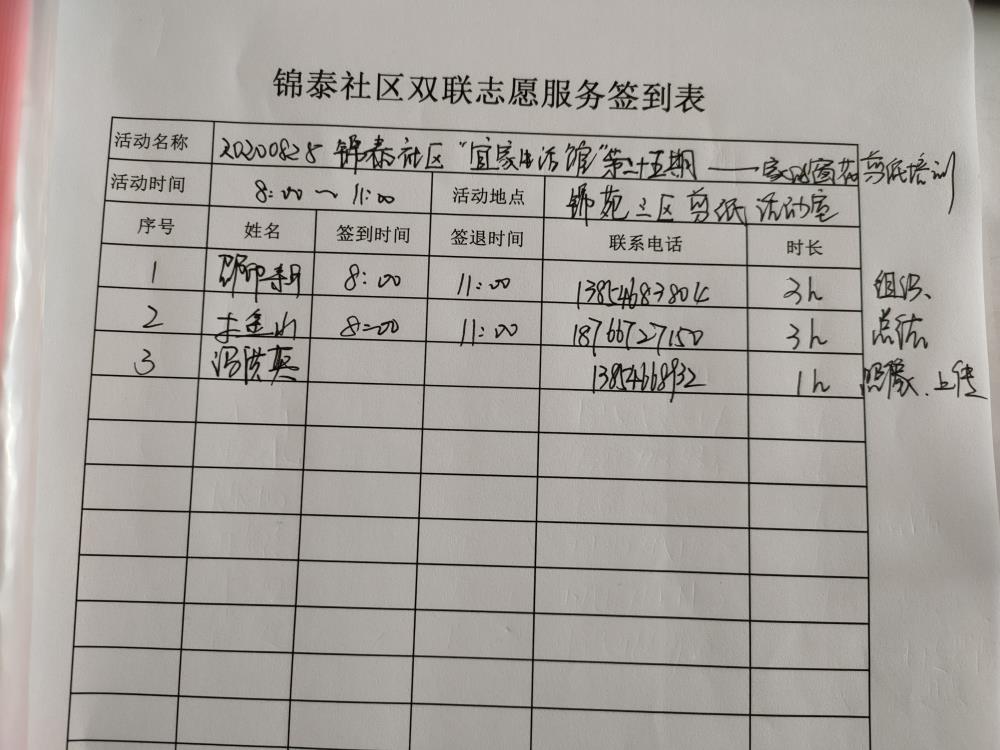 锦泰社区双联志愿服务签到表
活动名称 20200825 锦泰社区“宜家生活馆”第二十五期——家风窗花剪纸培训
活动时间 8:00～11:00 活动地点 锦苑三区剪纸活动室
序号 姓名 签到时间 签退时间 联系电话 时长
1 8:00 11:00 13854683804 3h 组织、
2 8:00 11:00 18766727150 3h 总结
3 冯洪英 13854668932 1h 照像、上传